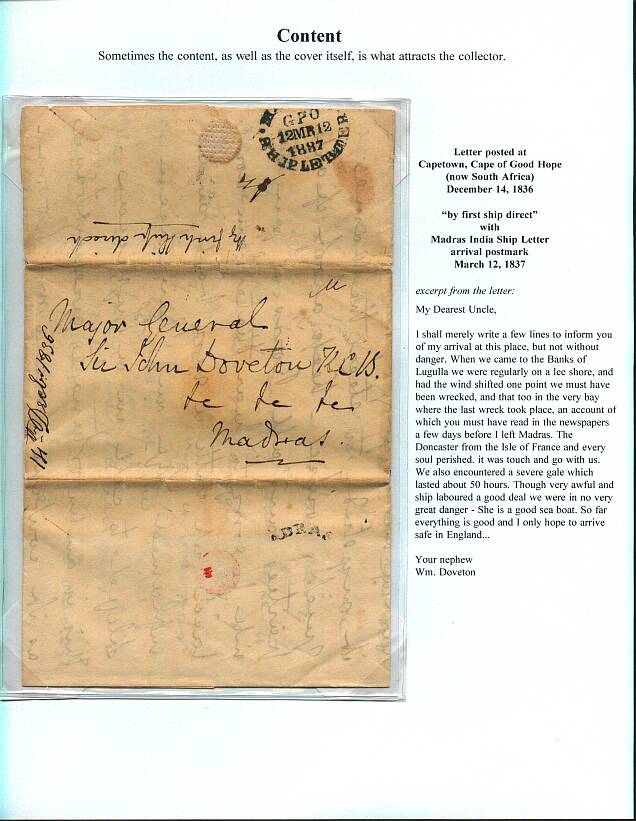 Content
Sometimes the content, as well as the cover itself, is what attracts the collector.
GPO
12MR12
1837
SHIP LETTER
By first Ship direct
Major General
Sir John Doveton KCB.
&c &c &c
Madras.
14th Decbr 1836
Letter posted at
Capetown, Cape of Good Hope
(now South Africa)
December 14, 1836
“by first ship direct”
with
Madras India Ship Letter
arrival postmark
March 12, 1837
excerpt from the letter:
My Dearest Uncle,
I shall merely write a few lines to inform you
of my arrival at this place, but not without
danger. When we came to the Banks of
Lugulla we were regularly on a lee shore, and
had the wind shifted one point we must have
been wrecked, and that too in the very bay
where the last wreck took place, an account of
which you must have read in the newspapers
a few days before I left Madras. The
Doncaster from the Isle of France and every
soul perished. it was touch and go with us.
We also encountered a severe gale which
lasted about 50 hours. Though very awful and
ship laboured a good deal we were in no very
great danger - She is a good sea boat. So far
everything is good and I only hope to arrive
safe in England...
Your nephew
Wm. Doveton